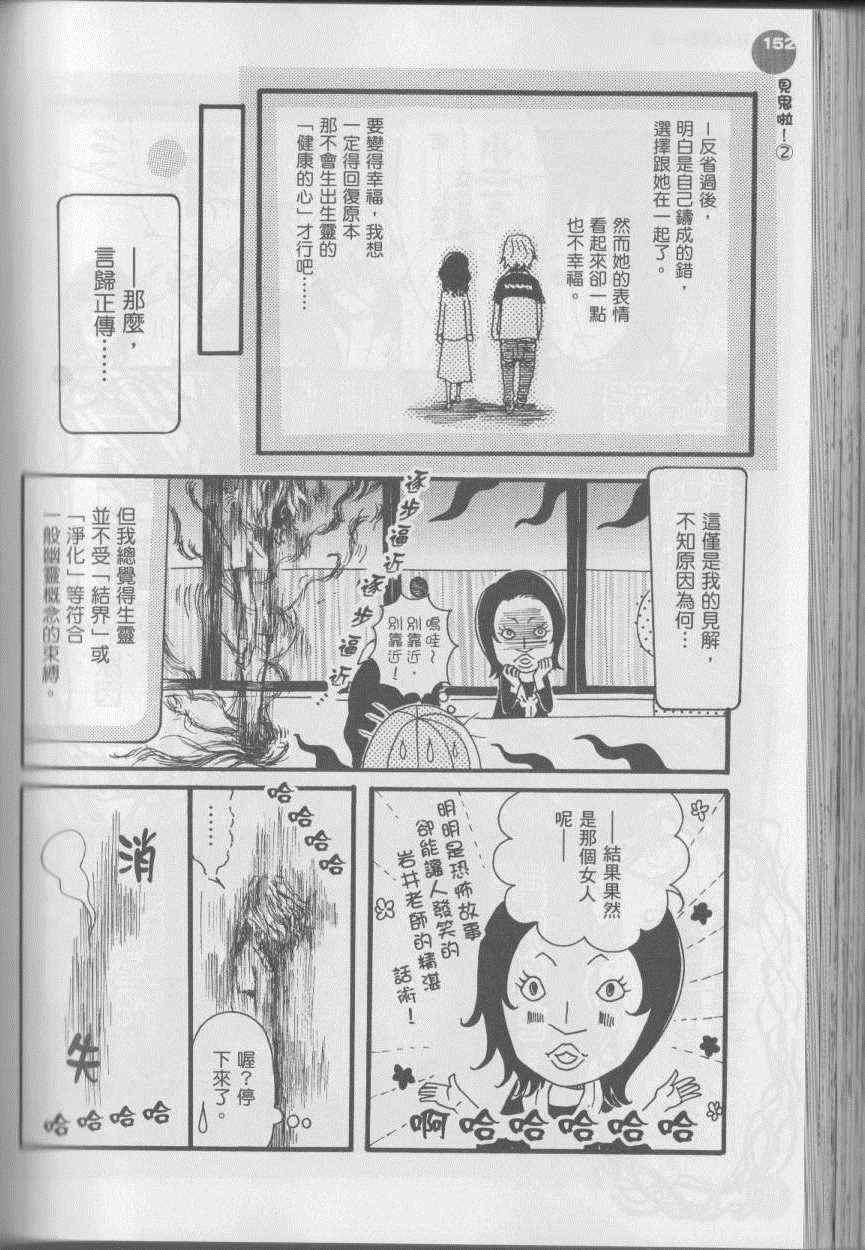 152
見鬼啦！②
—反省過後，
明白是自己鑄成的錯，
選擇跟她在一起了。
然而她的表情
看起來卻一點
也不幸福。
要變得幸福，我想
一定得回復原本
那不會生出生靈的
「健康的心」才行吧……
——那麼，
言歸正傳……
這僅是我的見解，
不知原因為何…
逐步逼近
逐步逼近…
嗚哇~
別靠近，
別靠近！
但我總覺得生靈
並不受「結界」或
「淨化」等符合
一般幽靈概念的束縛。
——結果果然
是那個女人
呢——
明明是恐怖故事
卻能讓人發笑的
岩井老師的精湛
話術！
啊哈哈哈哈哈
哈哈哈哈
……
喔？停
下來了。
消
失
哈哈哈哈